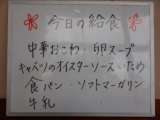 今日の給食
中華おこわ・卵スープ
キャベツのオイスターソースいため
食パン・ソフトマーガリン
牛乳